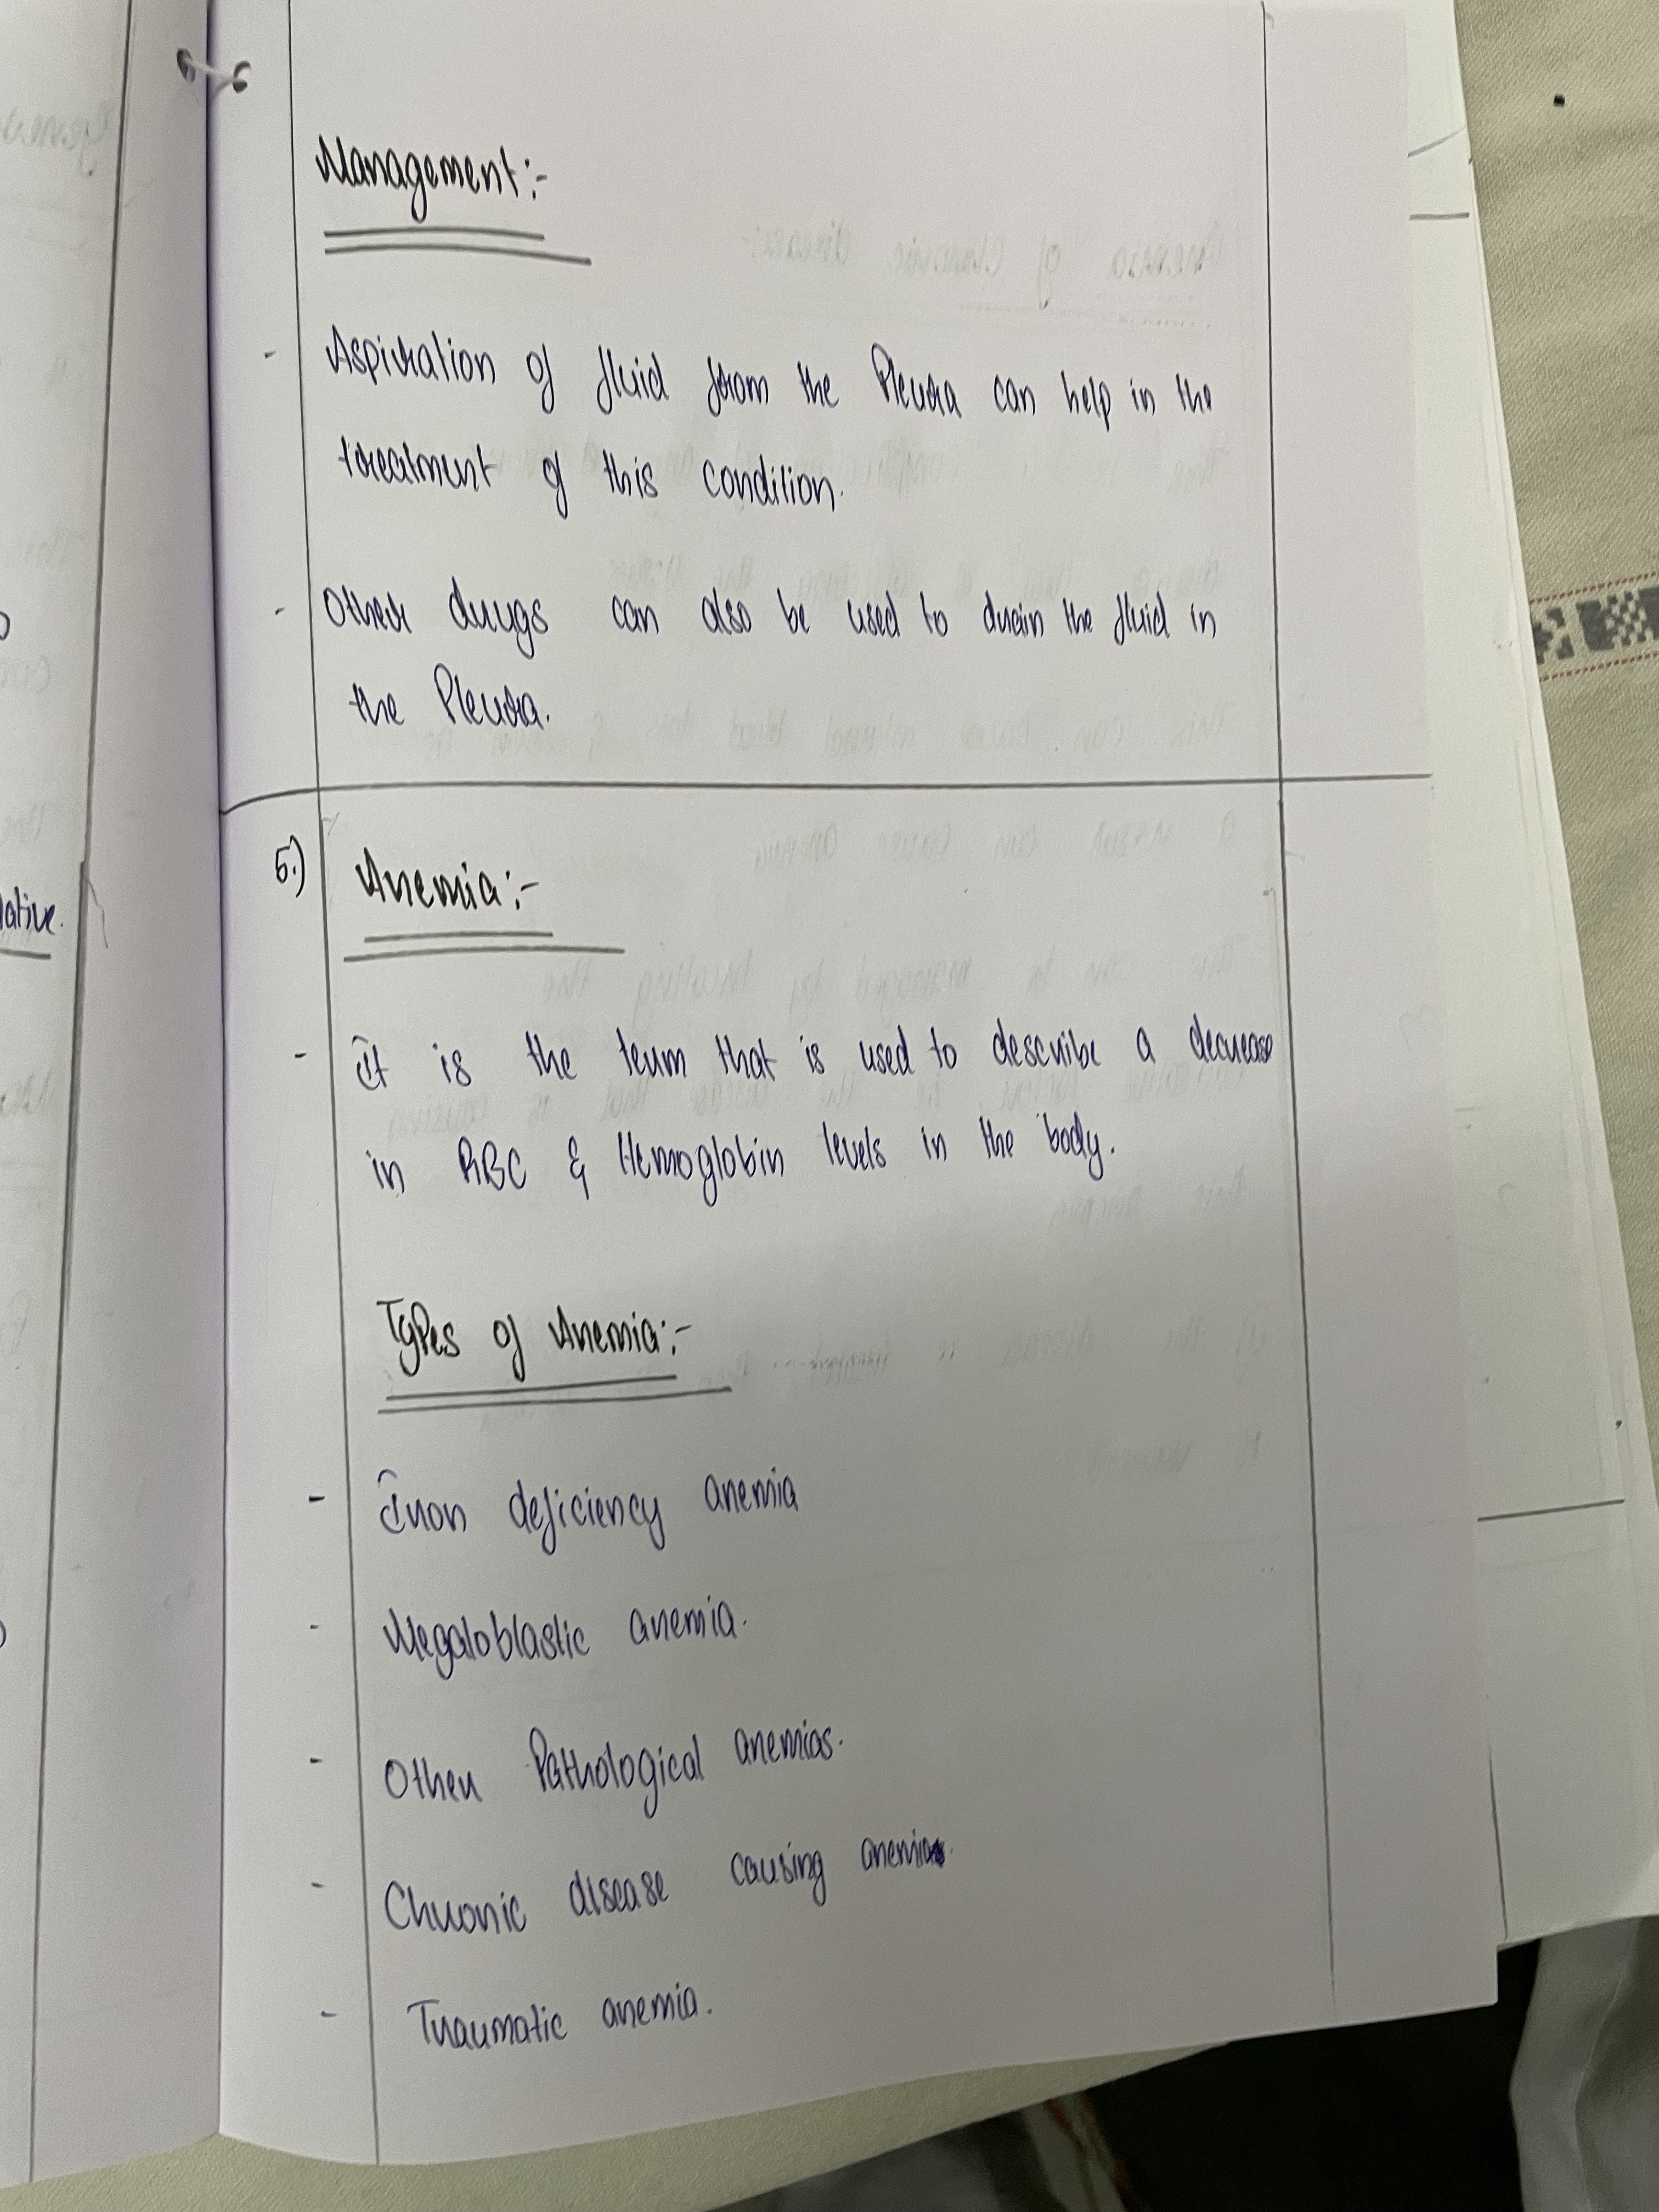 Management:-
- Aspiration of fluid from the Pleura can help in the
treatment of this condition.
- Other drugs can also be used to drain the fluid in
the Pleura.
5.) Anemia:-
- It is the term that is used to describe a decrease
in RBC & Hemoglobin levels in the body.
Types of Anemia:-
- Iron deficiency anemia
- Megaloblastic anemia.
- Other Pathological anemias.
- Chronic disease causing anemia.
- Traumatic anemia.
lative.